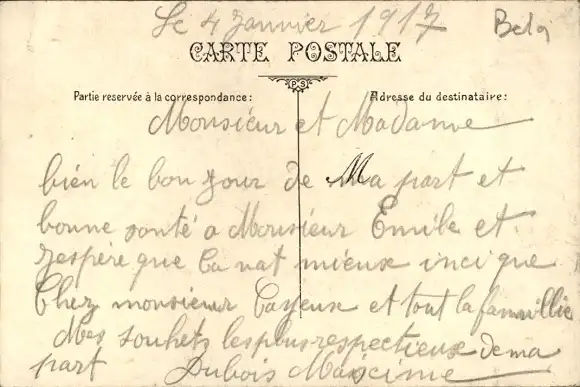 Le 4 Janvier 1917
Belg
CARTE POSTALE
PS
Partie reservée à la correspondance:
Adresse du destinataire:
Monsieur et Madame
bien le bon jour de Ma part et
bonne santé a Monsieur Emile et
jespère que la vat mieuse inci que
Chez monsieur Cayeuse et tout la famillie
Mes souhets les plus respectieuse de ma
part Dubois Maxcime